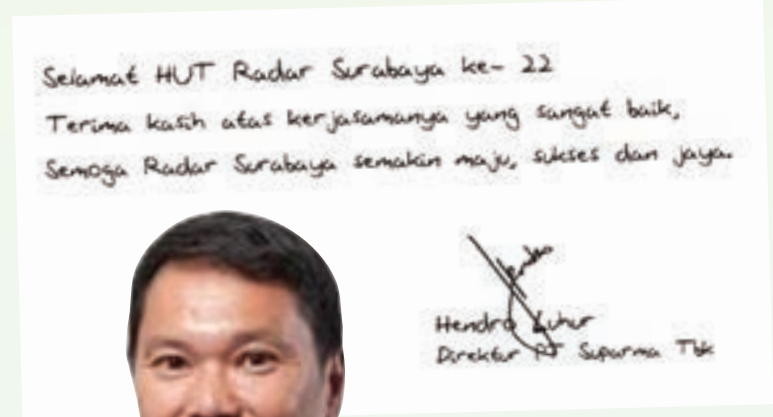 Selamat HUT Radar Surabaya ke- 22
Terima kasih atas kerjasamanya yang sangat baik,
Semoga Radar Surabaya semakin maju, sukses dan jaya.
Hendro Luhur
Direktur PT Suparma Tbk